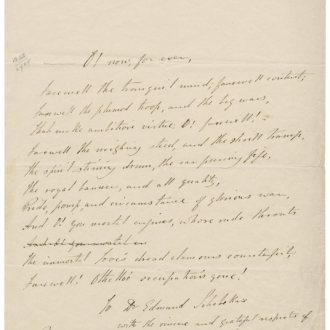 O! now, for ever,
farewell the tranquil mind; farewell content;
farewell the plumed troop, and the big wars,
that make ambition virtue: O! farewell!
farewell the neighing steed, and the shrill trump,
the spirit stirring drum, the ear piercing fife,
the royal banner, and all quality,
Pride, pomp, and circumstance of glorious war,
And O! you mortal engines, whose rude throats
the immortal Jove's dread clamours counterfeit,
farewell! Othello's occupation's gone!
To Dr Edmund
with the sincere and grateful respects of